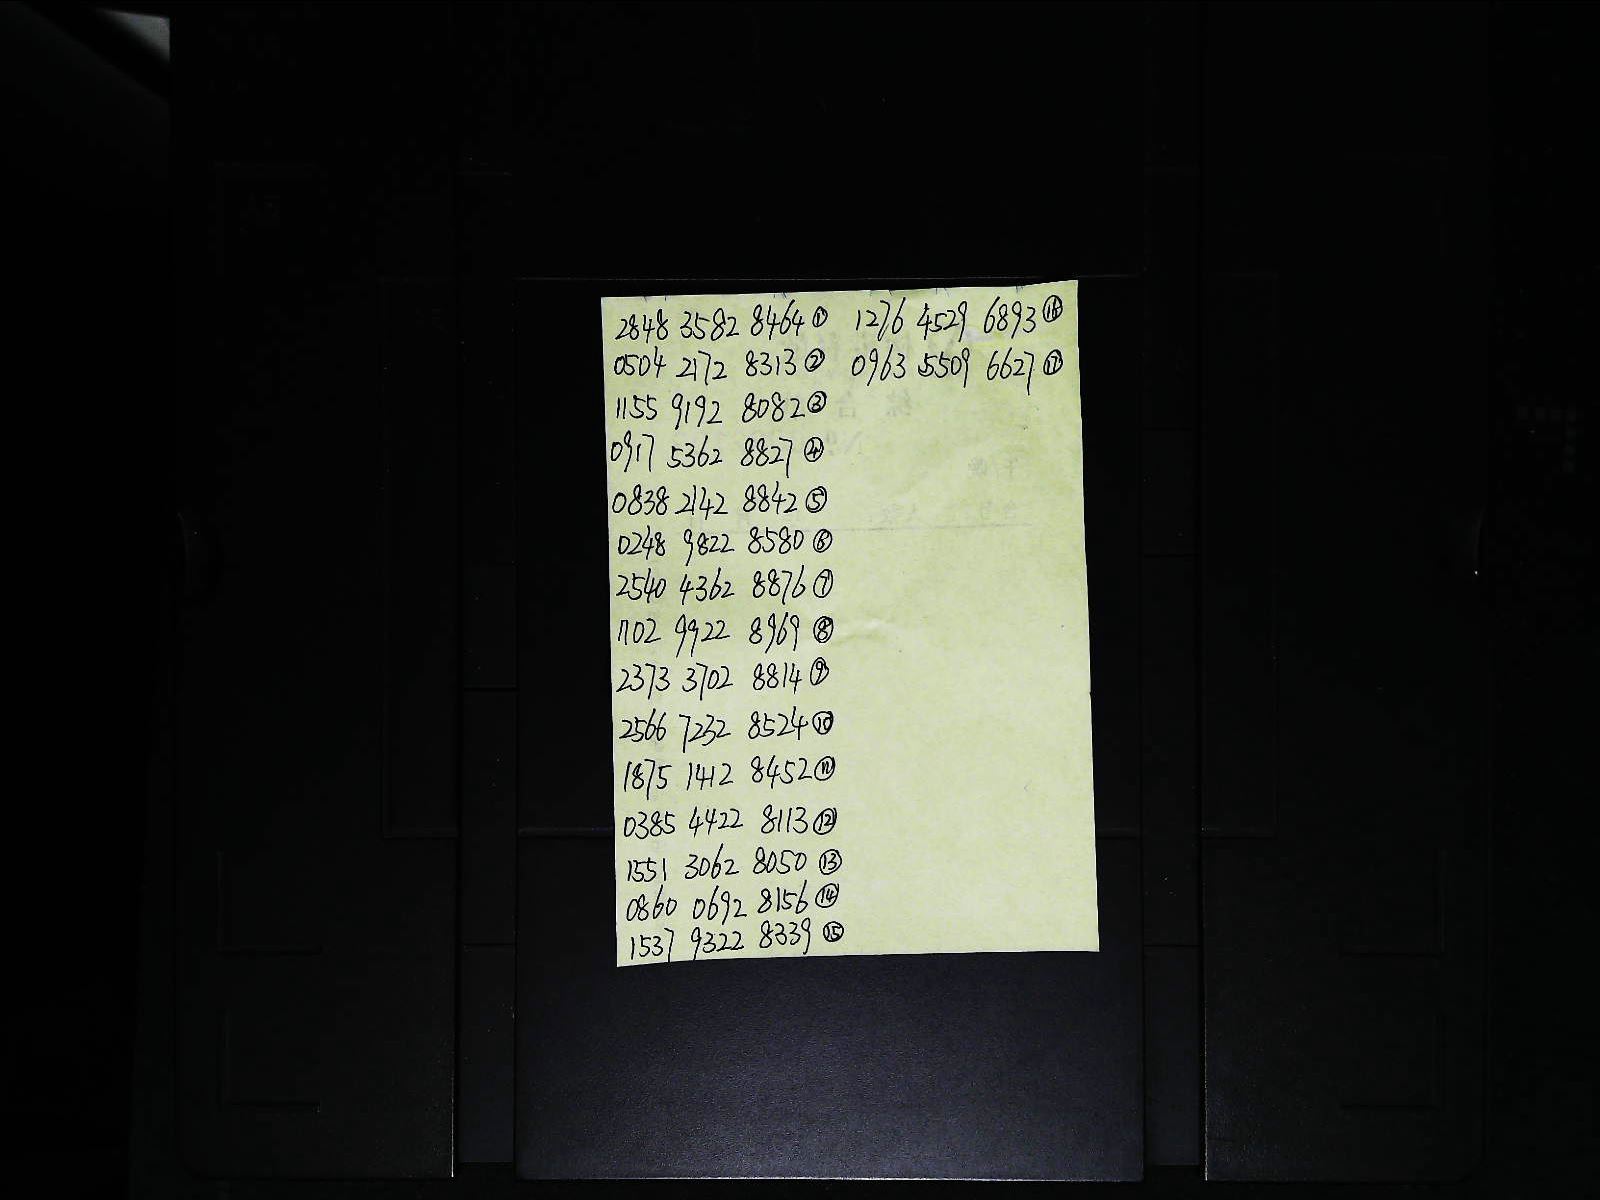 2848 3582 8464 ①
0504 2172 8313 ②
1155 9192 8082 ③
0917 5362 8827 ④
0838 2142 8842 ⑤
0248 9822 8580 ⑥
2540 4362 8876 ⑦
1102 9922 8969 ⑧
2373 3702 8814 ⑨
2566 7232 8524 ⑩
1875 1412 8452 ⑪
0385 4422 8113 ⑫
1551 3062 8050 ⑬
0860 0692 8156 ⑭
1537 9322 8339 ⑮
1276 4529 6893 ⑯
0963 5509 6627 ⑰